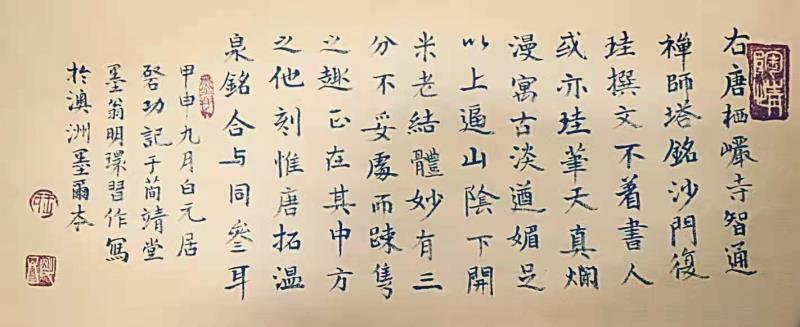 右唐栖巖寺智通
禪師塔銘沙門復
珪撰文不着書人
或亦珪筆天真爛
漫寓古淡遒媚足
以上逼山陰下開
米老結體妙有三
分不妥處而踈隽
之趣正在其中方
之他刻惟唐拓温
泉銘合与同叄耳
甲申九月白元居
啓功記于简靖堂
墨翁明環習作寫
於澳洲墨爾本